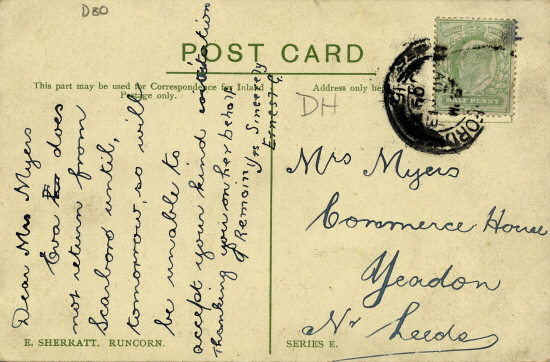 D80
POST CARD
This part may be used for Correspondence for Inland
Postage only.
Address only here
DH
HALF PENNY
Dear Mrs Myers
Eva does
not return from
Scarboro until,
tomorrow, so will
be unable to
accept your kind invitation
Thanking you on her behalf
I Remain
Yrs Sincerely
Ernest G.
Mrs Myers
Commerce House
Yeadon
Nr Leeds
E. SHERRATT, RUNCORN.
SERIES E.